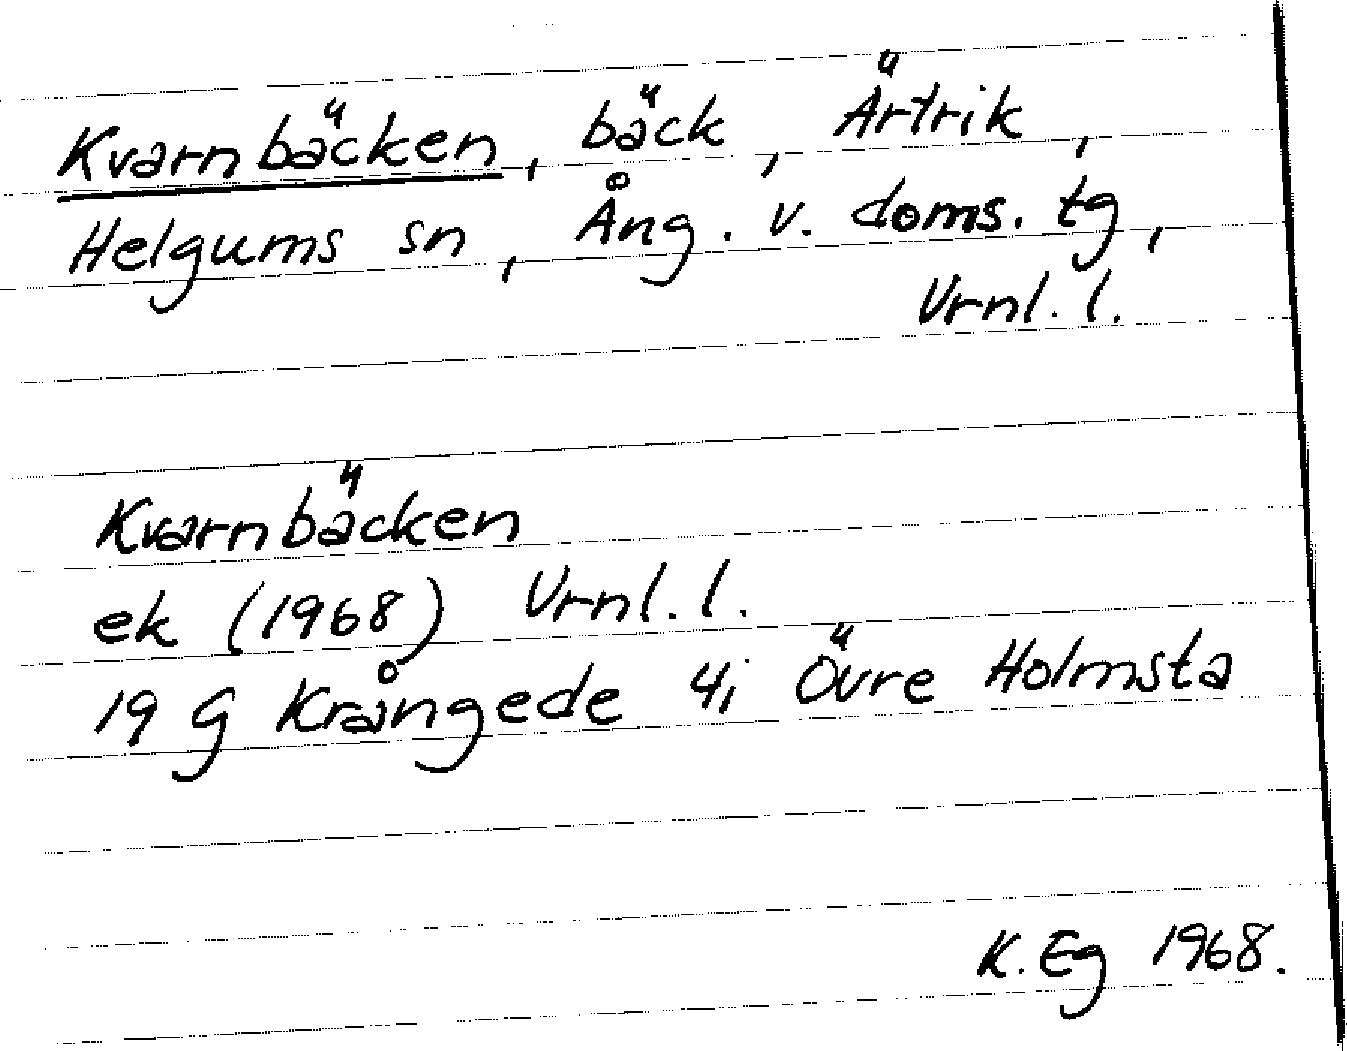 Kvarnbäcken, bäck, Ärtrik,
Helgums sn, Ång. v. doms. tg,
Vrnl. l.
Kvarnbäcken
ek (1968) Vrnl. l.
19 G Krångede 4i Övre Holmsta
K. Eg 1968.